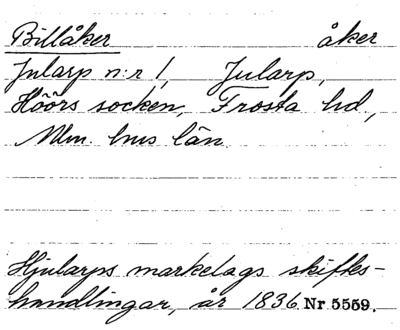 Billåker åker
Jularp n:r 1, Jularp,
Höörs socken, Frosta hd.,
Mlm. hus län
Hjularps markelags skifles-
handlingar, år 1836. Nr 5559.